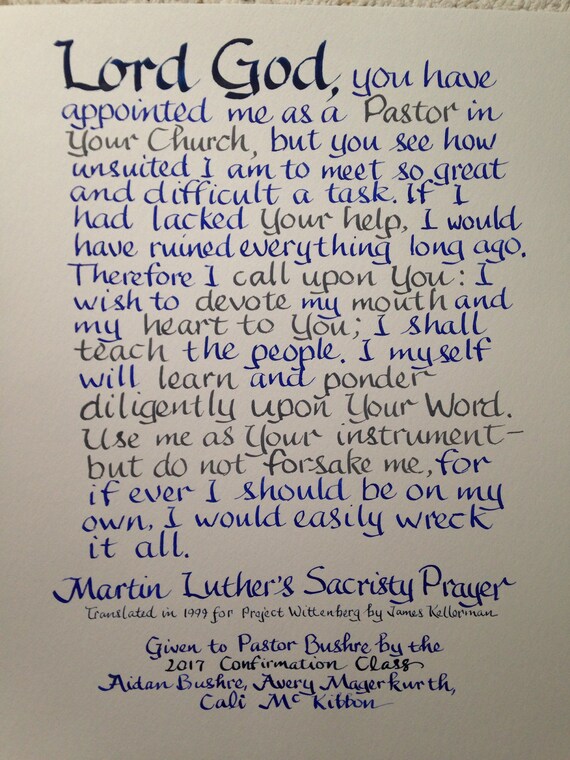 Lord God, you have
appointed me as a Pastor in
Your Church, but you see how
unsuited I am to meet so great
and difficult a task. If I
had lacked Your help, I would
have ruined everything long ago.
Therefore I call upon You: I
wish to devote my mouth and
my heart to You; I shall
teach the people. I myself
will learn and ponder
diligently upon Your Word.
Use me as Your instrument—
but do not forsake me, for
if ever I should be on my
own, I would easily wreck
it all.
Martin Luther's Sacristy Prayer
Translated in 1999 for Project Wittenberg by James Kellerman
Given to Pastor Bushre by the
2017 Confirmation Class
Aidan Bushre, Avery Magerkurth,
Cali McKibbon